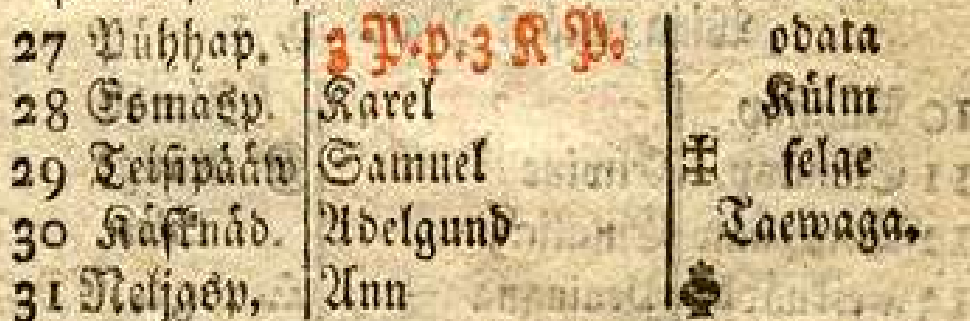 27 Pühhap. 3 P. p. 3 K P. odata
28 Esmasp. Karel Külm
29 Teisipääw Samuel selge
30 Käsknäd. Adelgund Taewaga.
31 Neljasp, Ann